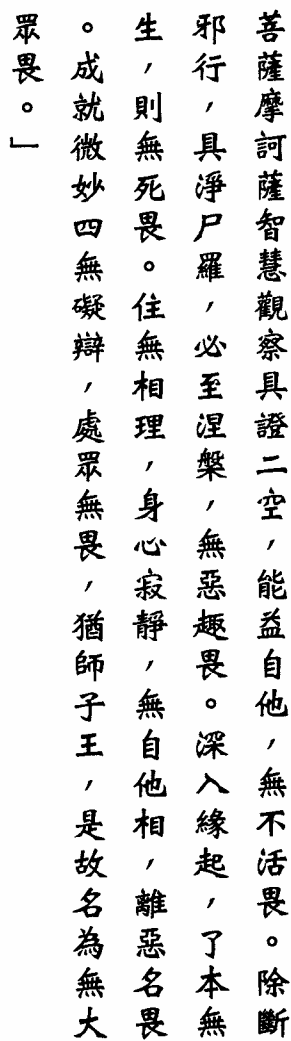 菩薩摩訶薩智慧觀察具證二空，能益自他，無不活畏。除斷
邪行，具淨尸羅，必至涅槃，無惡趣畏。深入緣起，了本無
生，則無死畏。住無相理，身心寂靜，無自他相，離惡名畏
。成就微妙四無礙辯，處眾無畏，猶師子王，是故名為無大
眾畏。」